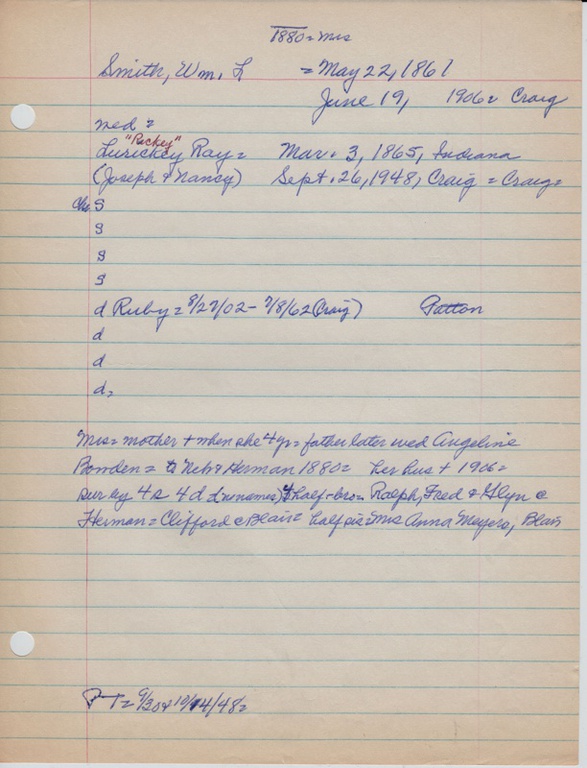 1880 = Mrs
Smith, Wm. L = May 22, 1861
June 19, 1906 = Craig
med =
"Rickey"
Lurickey Ray = Mar. 3, 1865, Indiana
(Joseph + Nancy) Sept. 26, 1948, Craig = Craig =
Ch S
S
S
S
d Ruby = 8/27/02 - 7/8/62 (Craig) Patton
d
d
d =
Mrs = mother + when she 4 yr = father later wed Angeline
Bowden = to Neb & Herman 1880 = her hus + 1906 =
sur by 4 s 4 d (no names) & half-bro = Ralph, Fred & Glyn c
Herman = Clifford c Blair = half sis = Mrs Anna Meyers, Blair
P-T = 9/30 & 10/14/48 =